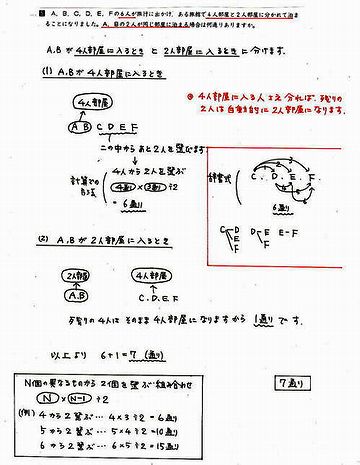 A、B、C、D、E、Fの6人が旅行に出かけ、ある旅館で4人部屋と2人部屋に分かれて泊まることになりました。A、Bの2人が同じ部屋に泊まる場合は何通りありますか。
A,Bが4人部屋に入るときと2人部屋に入るときに分けます。
(1) A,Bが4人部屋に入るとき
4人部屋
A B C D E F
この中からあと2人を選びます
計算での方法
4人から2人を選ぶ
4通り×3通り÷2
=6通り
※4人部屋に入る人さえ分れば、残りの
2人は自動的に2人部屋になります。
辞書式
C、D、E、F
6通り
C D
E
F
D E
F
E-F
(2) A,Bが2人部屋に入るとき
2人部屋
4人部屋
A,B
C,D,E,F
残りの4人はそのまま4人部屋になりますから 1通りです。
以上より 6+1=7(通り)
N個の異なるものから2個を選ぶ組み合わせ
N×N-1÷2
(例) 4から2選ぶ… 4×3÷2=6通り
5から2選ぶ… 5×4÷2=10通り
6から2選ぶ… 6×5÷2=15通り
7通り